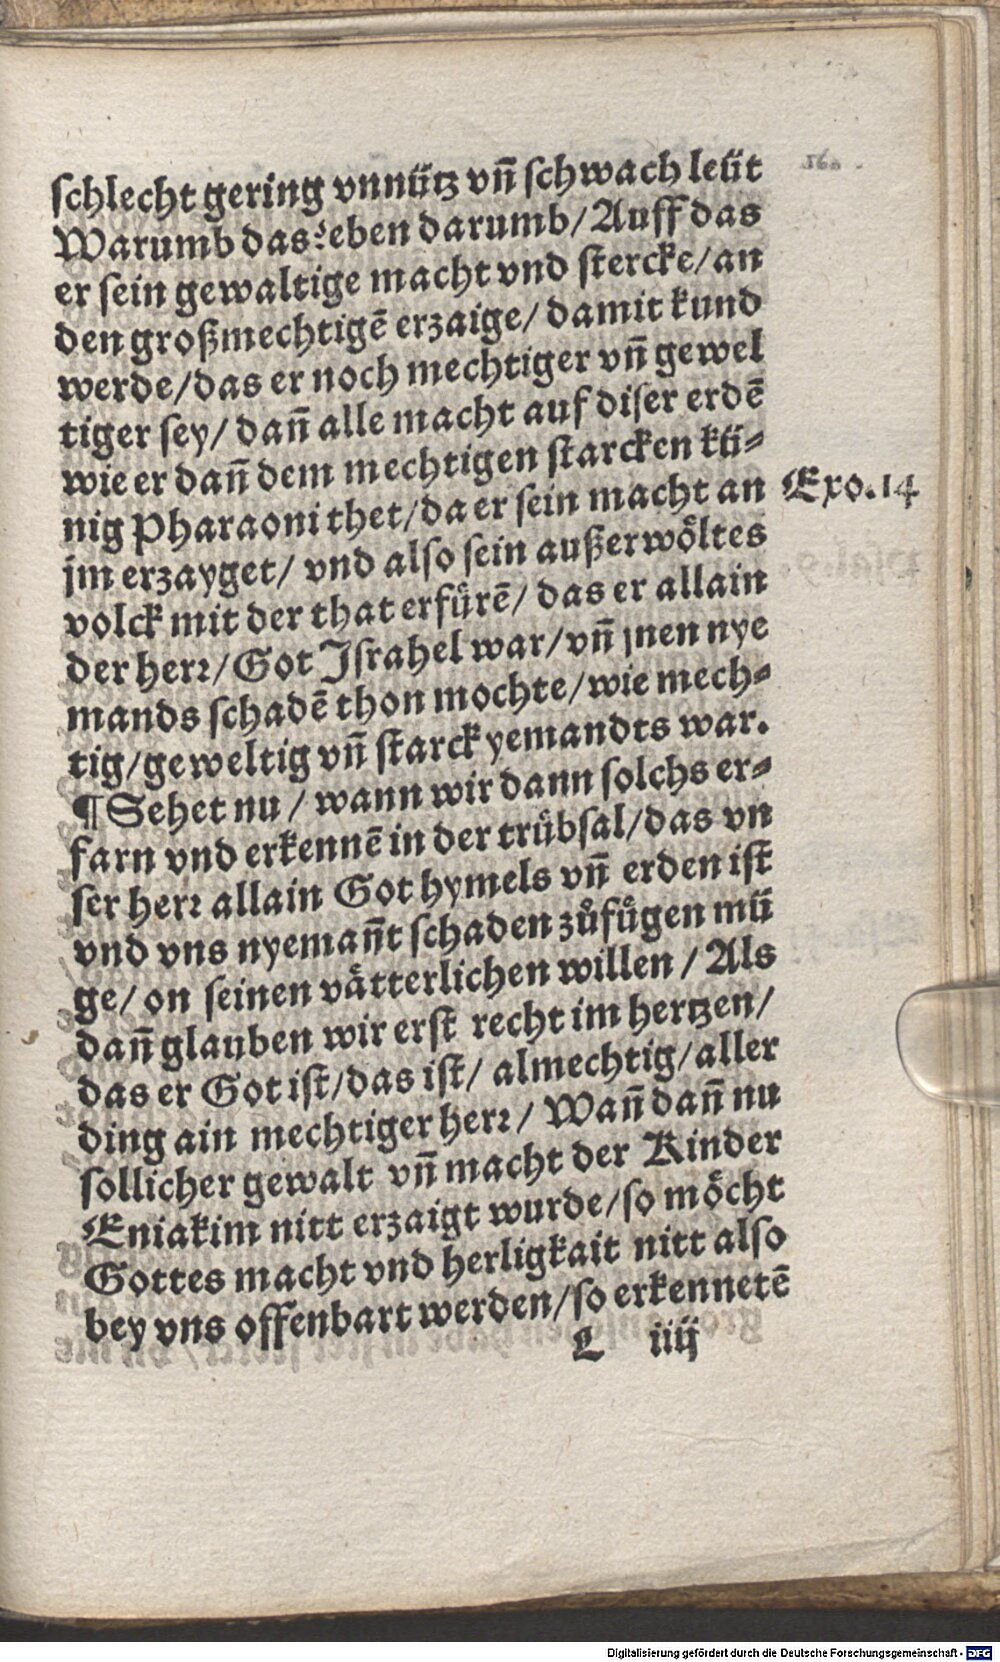 schlecht gering vnnütz vñ schwach leüt
Warumb das? eben darumb / Auff das
er sein gewaltige macht vnd stercke / an
den großmechtigẽ erzaige / damit kund
werde / das er noch mechtiger vñ gewel
tiger sey / dañ alle macht auf diser erdẽ
wie er dañ dem mechtigen starcken kü⸗
nig Pharaoni thet / da er sein macht an
Exo. 14
jm erzayget / vnd also sein außerwöltes
volck mit der that erfürẽ / das er allain
der herr / Got Israhel war / vñ jnen nye
mands schadẽ thon mochte / wie mech⸗
tig / geweltig vñ starck yemandts war.
¶ Sehet nu / wann wir dann solchs er⸗
farn vnd erkennẽ in der trübsal / das vn
ser herr allain Got hymels vñ erden ist
vnd vns nyemañt schaden zůfügen mü
ge / on seinen vätterlichen willen / Als
dañ glauben wir erst recht im hertzen /
das er Got ist / das ist / almechtig / aller
ding ain mechtiger herr / Wañ dañ nu
sollicher gewalt vñ macht der Kinder
Eniakim nitt erzaigt wurde / so möcht
Gottes macht vnd herligkait nitt also
bey vns offenbart werden / so erkennetẽ
L iiij
Digitalisierung gefördert durch die Deutsche Forschungsgemeinschaft - DFG